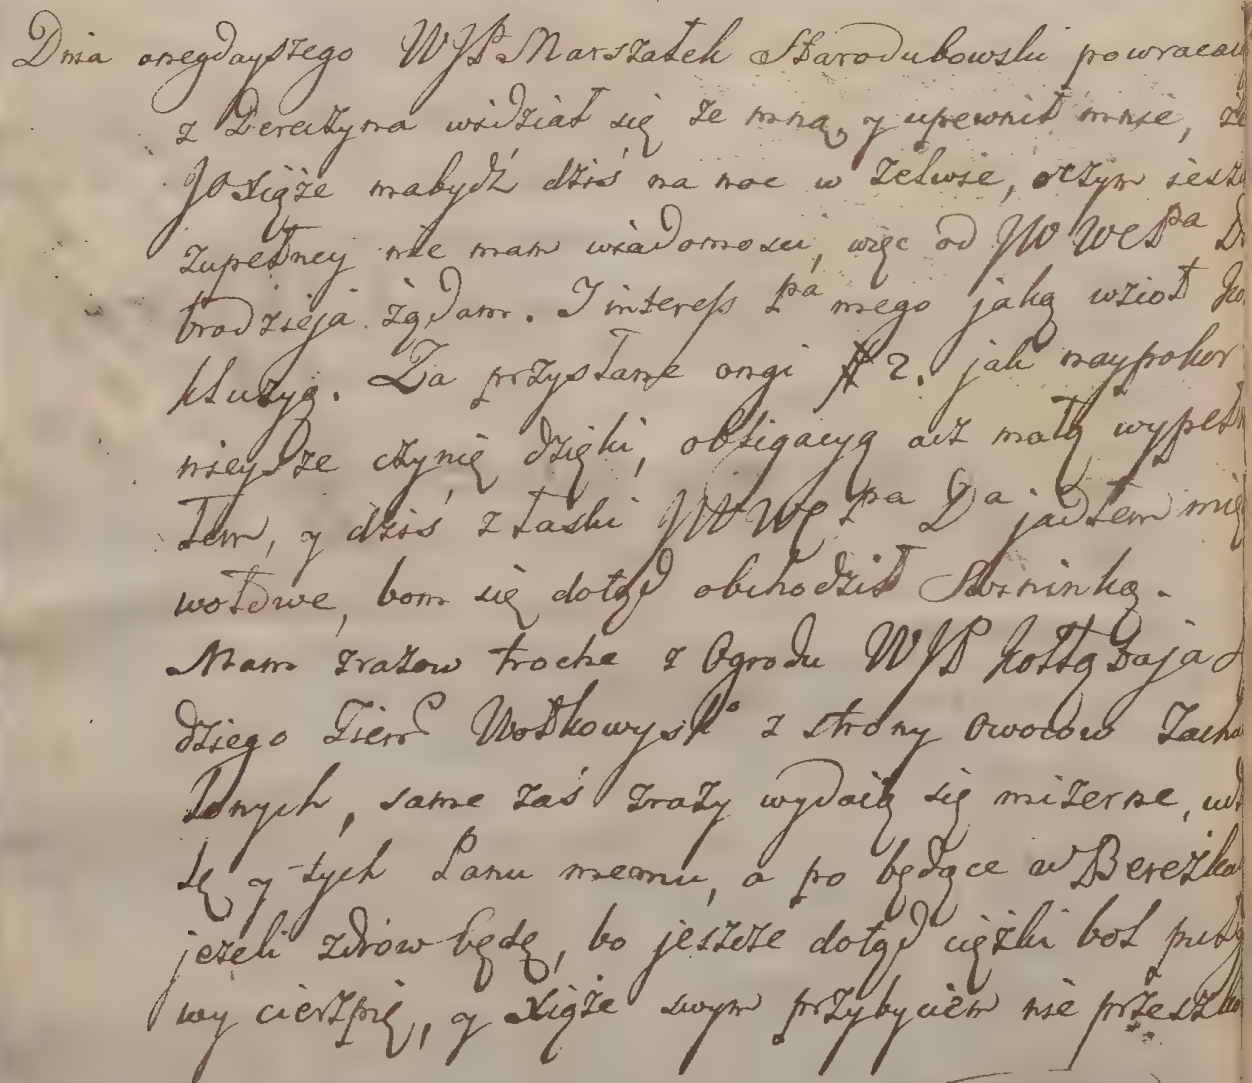 Dnia onegdayszego WJP Marszałek Starodubowski powracaią
z Dereczyna widział się ze mną, y upewnił mnie, że
JO Xiąże mabydź dziś na noc w Zelwie, oczym iesz
zupełney nie mam wiadomosci, więc od JW WCPa D
brodzieja żądam. I interess Pa mego jaką wzioł ko
kluzyą. Za przysłane ongi # 2. jak naypokor
nieysze czynię dzięki, obligacyą acz małą wypełn
łem, y dziś z łaski JW WCPa Da jadłem mię
wołowe, bom się dotąd obchodził Swininką.
Mam zrazow troche z Ogrodu WJP Kołłątaja
dziego Ziem Wołkowysko z strony owocow zach
lonych, same zaś zrazy wydaią się mizerne, udz
lę y tych Panu memu, a po będące w Bereżk
jeżeli zdrów będę, bo jeszcze dotąd cięzki bol
wy cierzpię, y Xiąże swym przybyciem nie przeszk